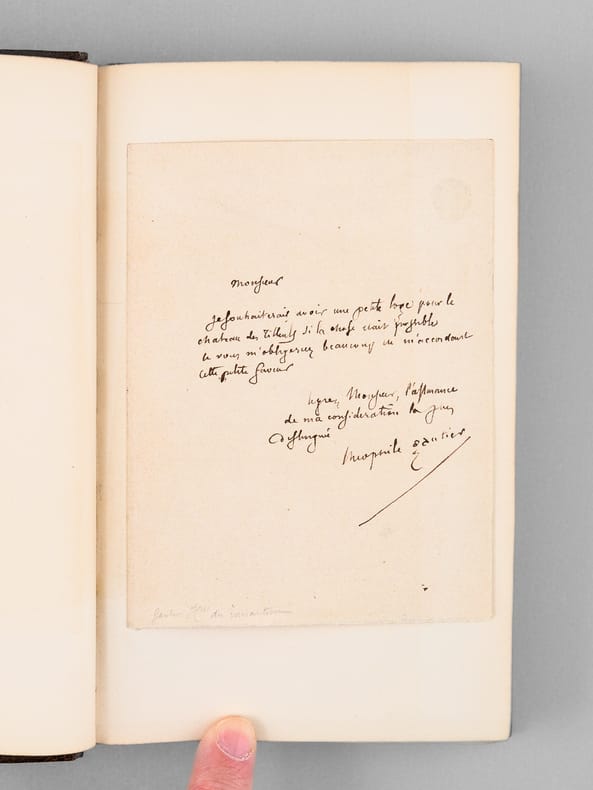 Monsieur
je souhaiterais avoir une petite loge pour le
chateau des tilleuls si la chose etait possible
et vous m'obligerez beaucoup en m'accordant
cette petite faveur
agreez Monsieur, l'assurance
de ma consideration la plus
distinguée
theophile gautier